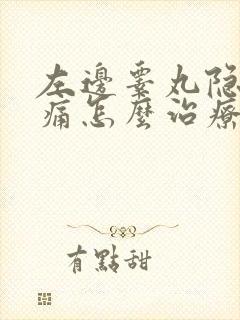 左邊睾丸隐
痛怎麼治療
有點甜